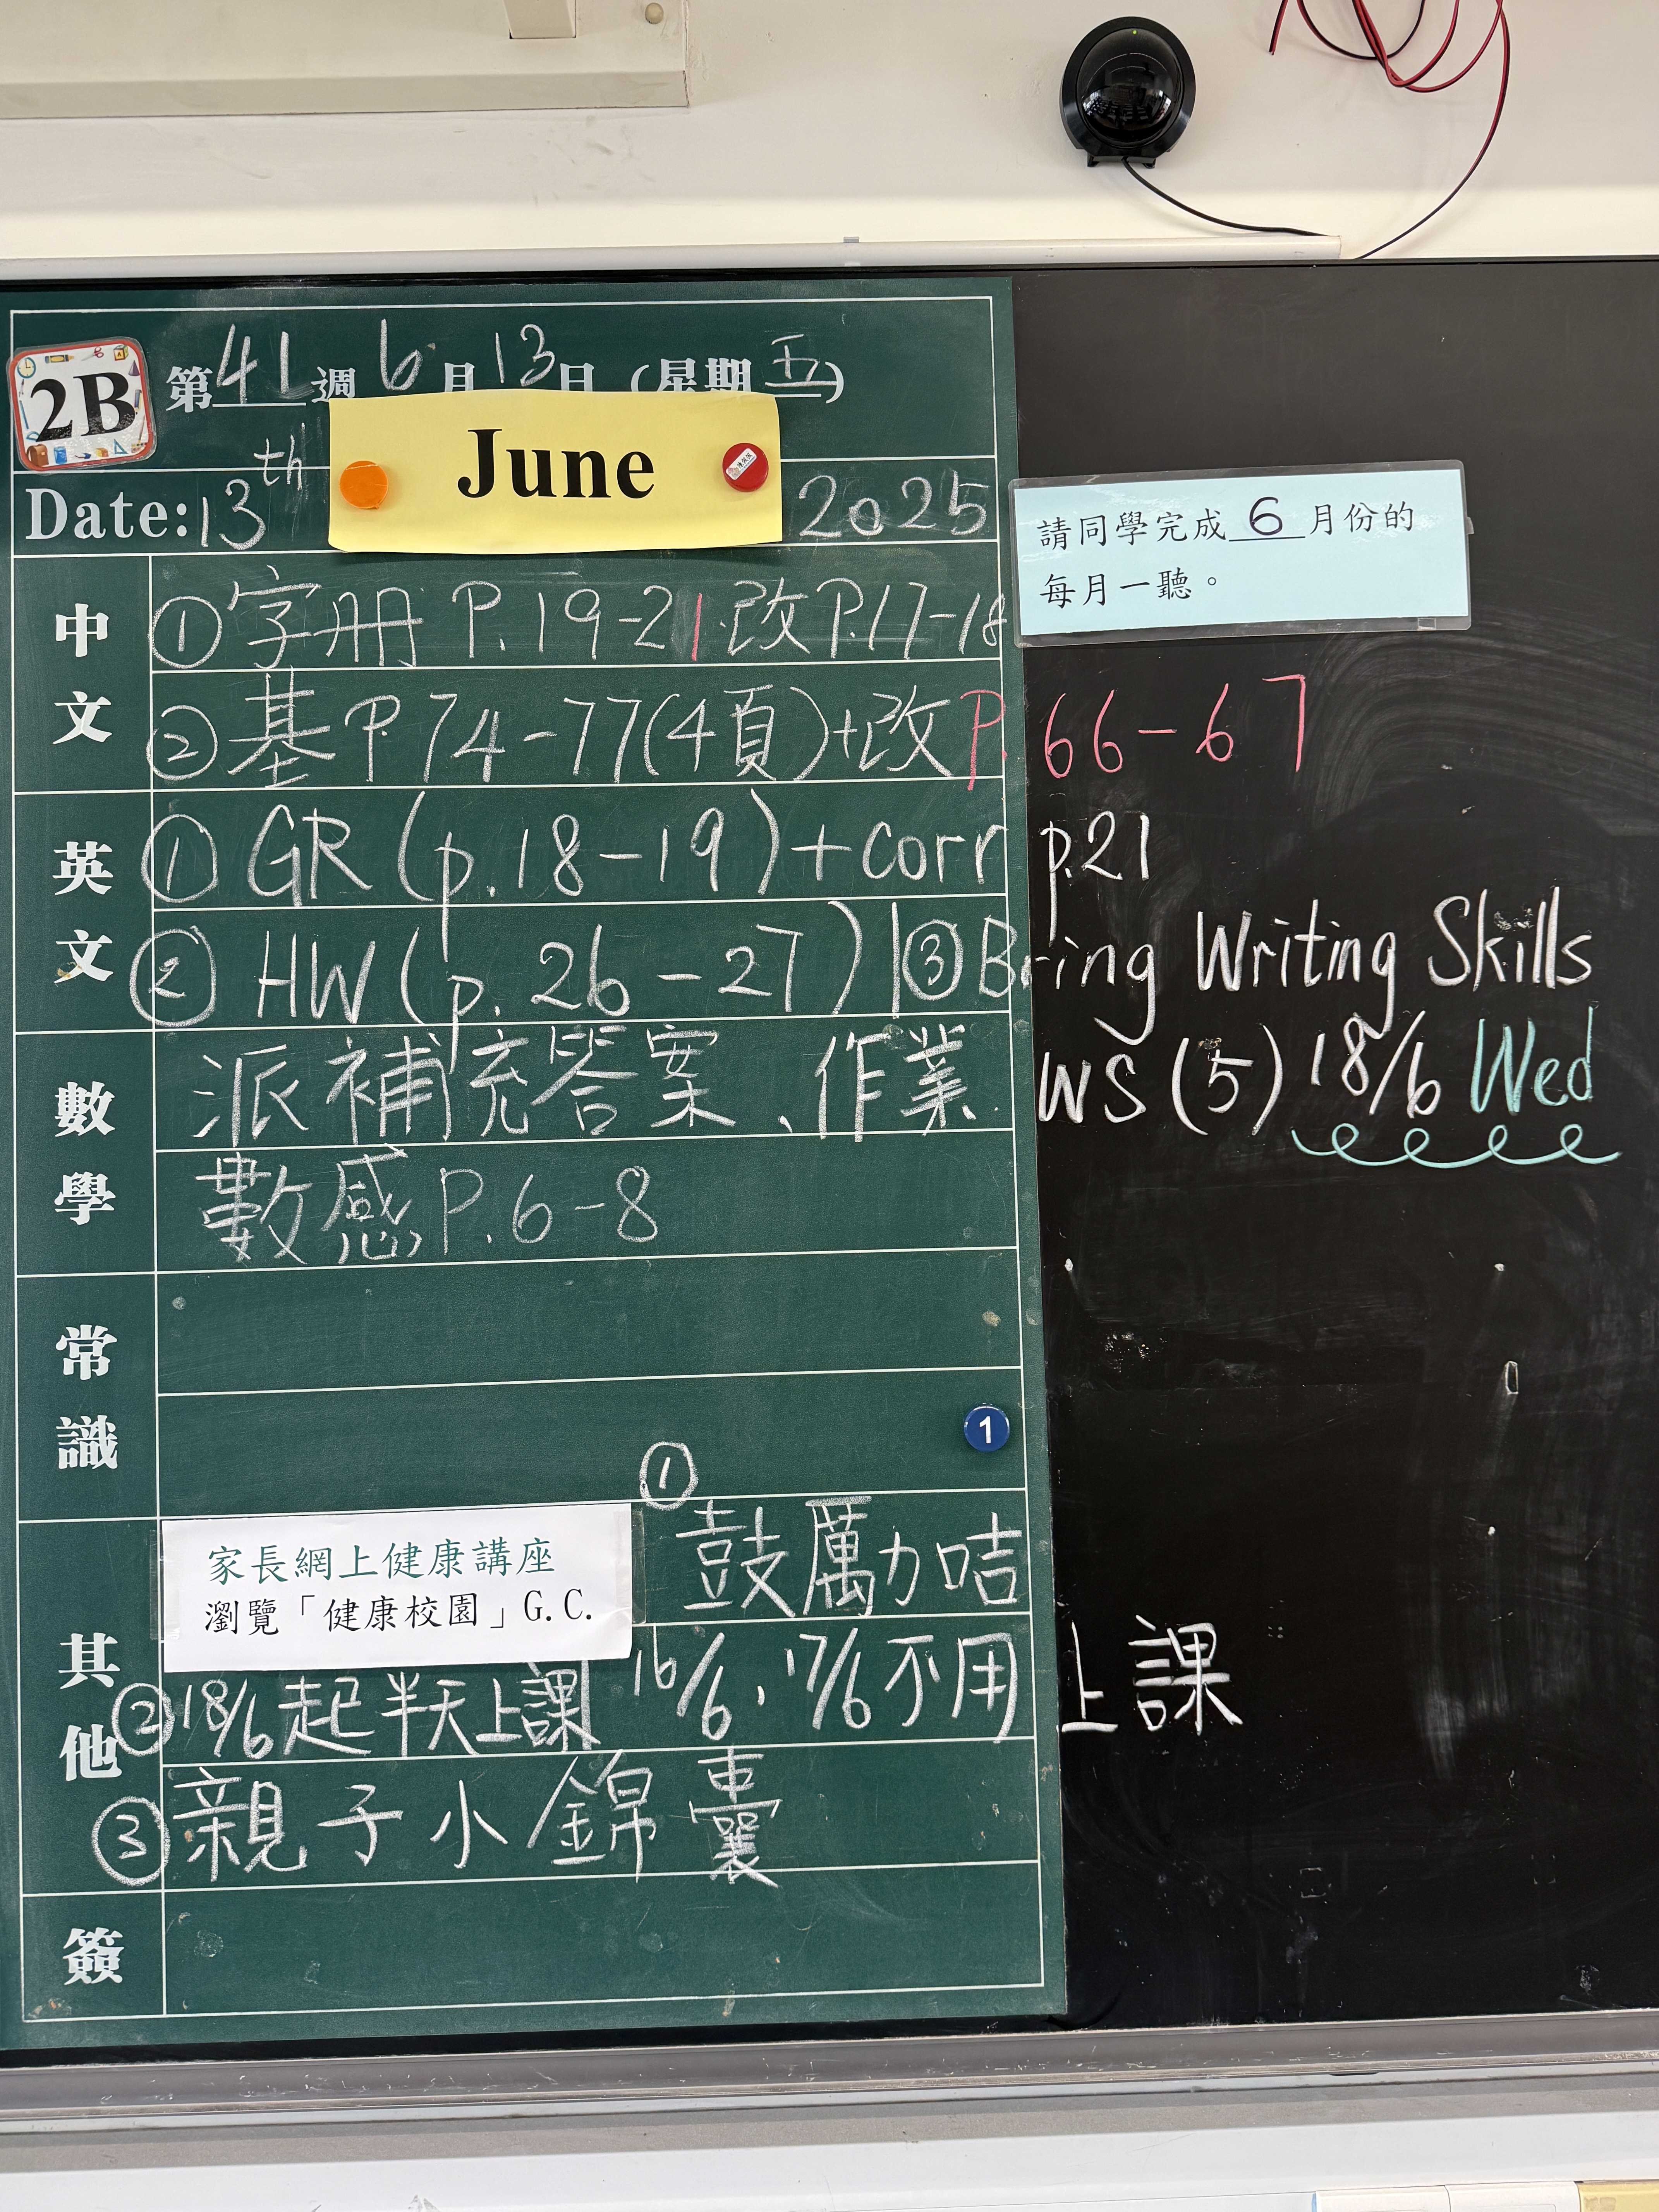 2B 第41週 6月13日(星期五)
Date: 13th June 2025
請同學完成 6 月份的
每月一聽。
中文
① 字冊 P.19-21 改P.17-18
② 基P.74-77(4頁)+改P.66-67
英文
① GR (p.18-19)+corr p.21
② HW (p.26-27) | ③ Bring Writing Skills
WS (5) 18/6 Wed
數學
派補充答案、作業
數感P.6-8
常識
1
其他
家長網上健康講座
瀏覽「健康校園」G.C.
① 鼓厲力咭
② 18/6起半天上課 16/6, 17/6不用上課
③ 親子小錦囊
簽